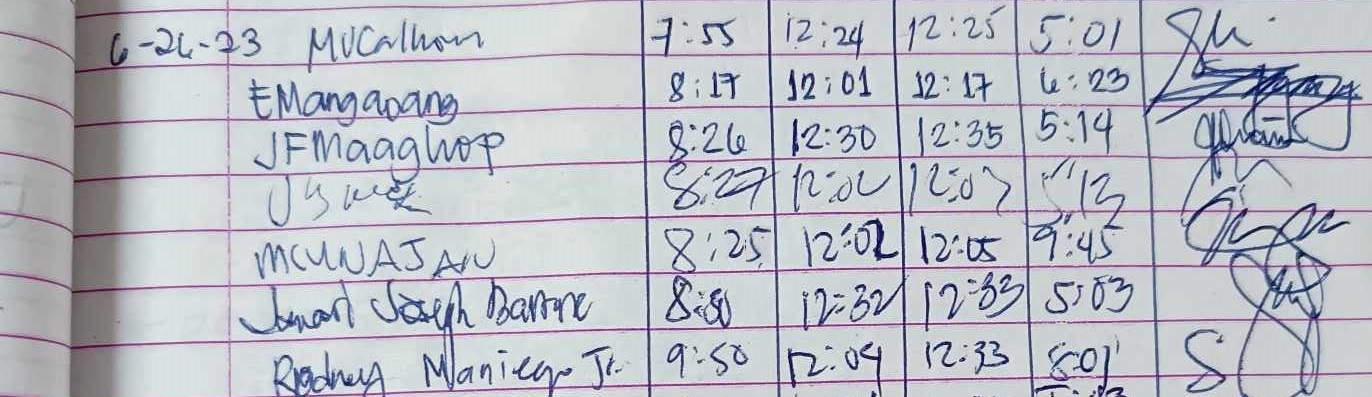 6-26-23 MVCalhoun 7:55 12:24 12:25 5:01
EMangapang 8:17 12:01 12:17 6:23
JFMaaghop 8:26 12:30 12:35 5:14
8:27 12:02 12:07 5:13
MCUNAJAN 8:25 12:02 12:05 9:45
Joseph 8:30 12:32 12:33 5:03
Rodney Maniego Jr. 9:50 12:09 12:33 8:01